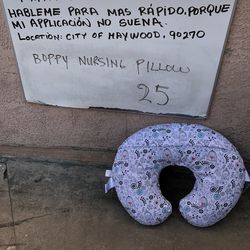 HABLEME PARA MAS RÁPIDO, PORQUE
MI APPLICACIÓN NO SUENA.
LOCATION: CITY OF MAYWOOD, 90270
BOPPY NURSING PILLOW
25